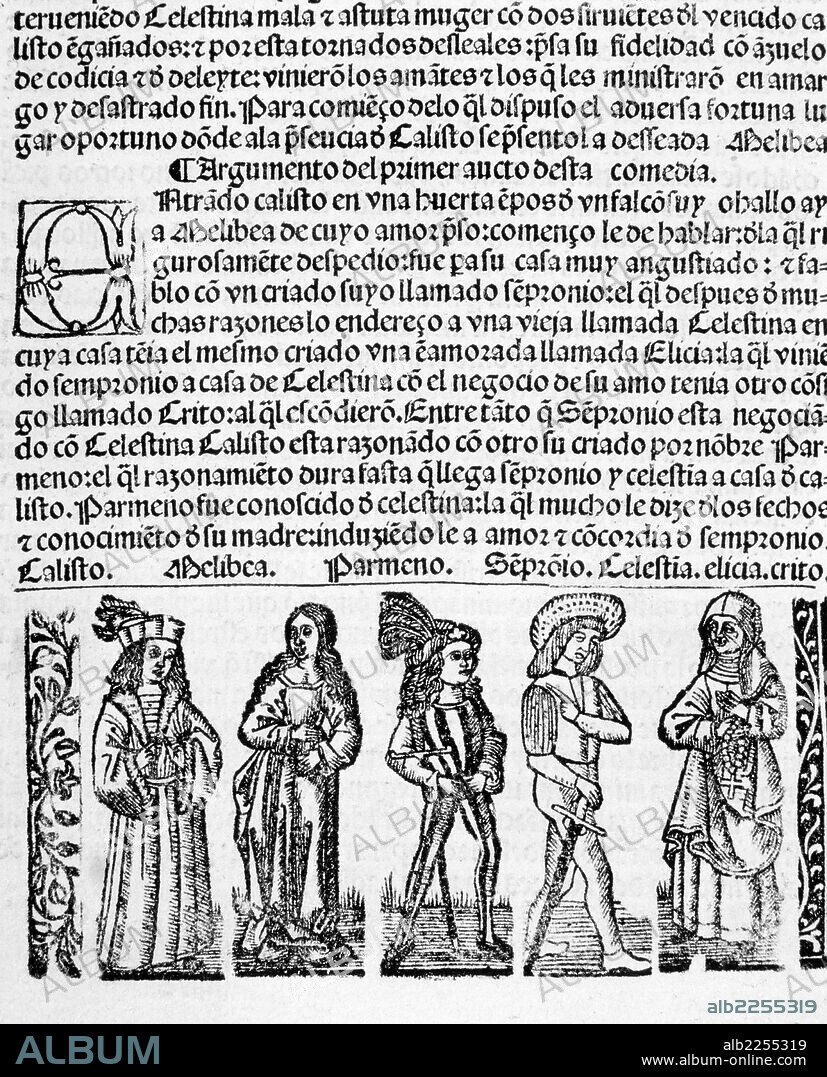 terueniẽdo Celestina mala ⁊ astuta muger cõ dos siruiẽtes đl vencido ca
listo ẽgañados: ⁊ por esta tornados desleales: p̃sa su fidelidad cõ ãzuelo
de codicia ⁊ đ deleyte: vinierõ los amãtes ⁊ los q̃ les ministrarõ en amar
go y desastrado fin. Para comiẽço delo q̃l dispuso el aduersa fortuna lu
gar oportuno dõde ala p̃sencia đ Calisto se p̃sento la desseada Melibea
¶ Argumento del primer aucto desta comedia.
ENtrãdo calisto en vna huerta ẽpos đ vn falcõ suyo hallo ay
a Melibea de cuyo amor p̃so: començo le de hablar: đla q̃l ri
gurosamẽte despedio: fue pa su casa muy angustiado: ⁊ fa-
blo cõ vn criado suyo llamado sẽpronio: el q̃l despues đ mu-
chas razones lo endereço a vna vieja llamada Celestina en
cuya casa tẽia el mesmo criado vna ẽamorada llamada Elicia: la q̃l viniẽ
do sempronio a casa de Celestina cõ el negocio de su amo tenia otro cõsi
go llamado Crito: al q̃l escõdierõ. Entre tãto q̃ Sẽpronio esta negociã-
do cõ Celestina Calisto esta razonãdo cõ otro su criado por nõbre Par-
meno: el q̃l razonamiẽto dura fasta q̃ llega sẽpronio y celestĩa a casa đ ca-
listo. Parmeno fue conoscido đ celestina: la q̃l mucho le dize đlos fechos
⁊ conocimiẽto đ su madre: induziẽdo le a amor ⁊ cõcordia đ sempronio.
Calisto. Melibea. Parmeno. Sẽprõio. Celestĩa. elicia. crito
alb2255319
ALBUM
alb2255319
www.album-online.com